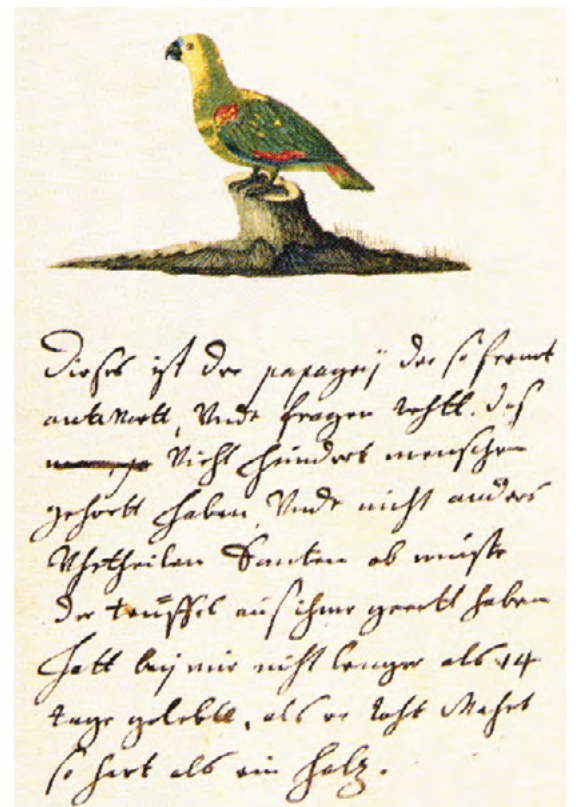 Dieses ist der papageij der so fremt
antwortt, Vnde fragen
Vicht hundert menschen
gehortt haben, Vnde nicht anders
Vhrtheilen ob müste
der teuffel aus ihme geredt haben
hatt beij mir nicht lenger als 14
tage gelebtt, als er toht Wahr
so hart als ein holz.